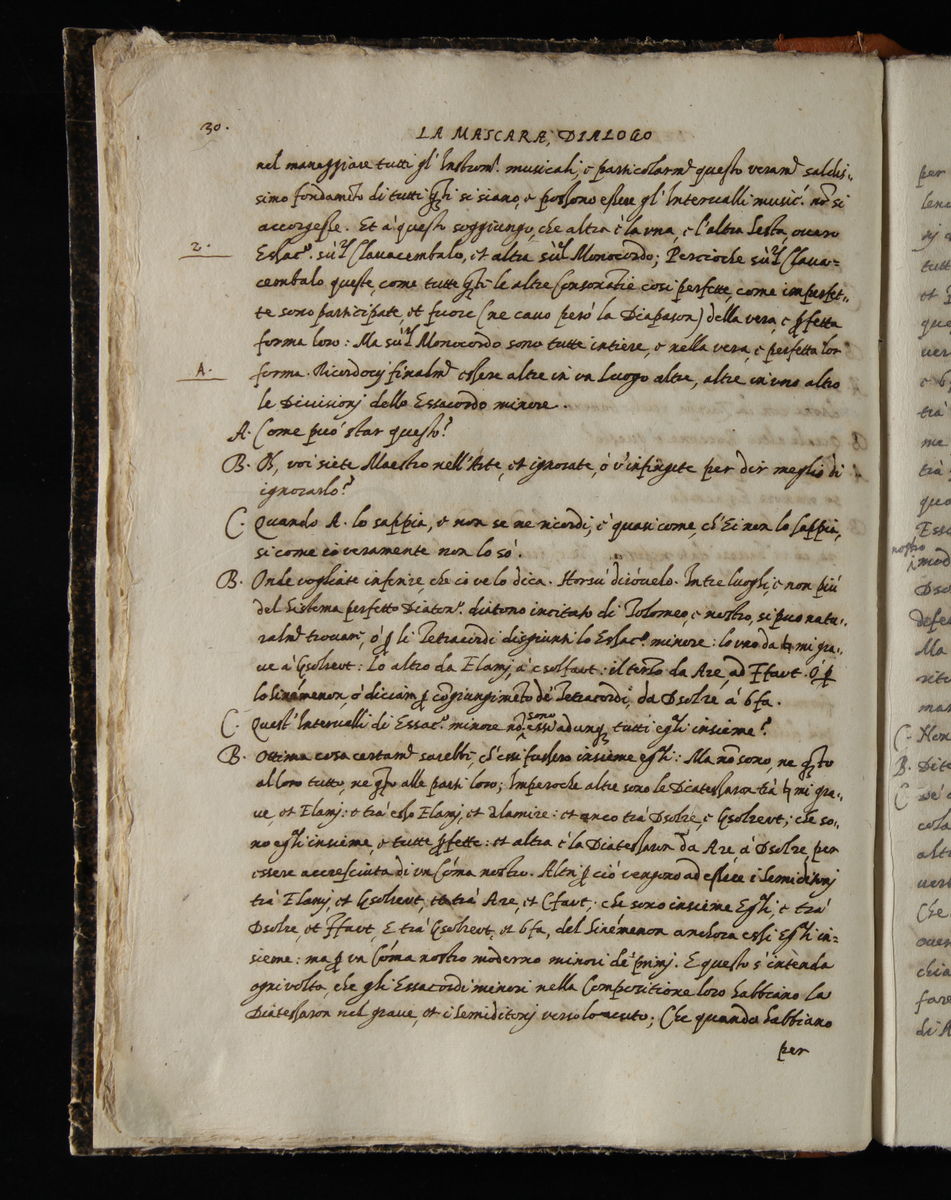 30.
LA MASCARA, DIALOGO
nel maneggiare tutti gl' Instrom.ti musicali, e particolarm.te questo veram.te saldis-
simo fondam.to di tutti q̃lli si siano, e possono essere gl' Intervalli music.i nõ si
accorgesse. Et à questo soggiungo, che altra è la una, e l'altra Sesta, overo
2.
Essac.o sù'l Clavacembalo, et altra sù'l Monocordo; Percioche sù'l Clava=
cembalo queste, come tutte q̃lle altre Consonãtie così perfette, come imperfet-
te sono participate, et fuore (ne cavo però la Diapason) della vera, e p̱fetta
forma loro: Ma sù'l Monocordo sono tutte intiere, e nella vera, e perfetta lor
A.
forma. Ricordovj finalm.te essere altre in un luogo altre, altre in uno altro
le Divisionj dello Essacordo minore.
A. Come può star questo?
B. O, voi siete Maestro nell'Arte, et ignorate, ò v'infingete per dir meglio di
ignorarlo?
C. Quando A. lo sappia, e non se ne ricordi, è quasi come, ch'Ei non lo sappia,
si come io veramente non lo sò.
B. Onde vogliate inferire, che io ve lo dica. Horsù diròvelo. In tre luoghi, e non più
del Sistema perfetto Diaton.o diatono incitato di Tolomeo, e nostro, si può natu-
ralm.te trovare, ò p̱ li Tetracordi disgiunti lo Essac.o minore: lo uno da ♮ mi gra-
ve à Gsolreut: Lo altro da Elamj, à csolfaut: il terzo da Are, ad Ffaut. O' p̱
lo Sinemenon, ò diciam p̱ cõgiungimẽto de' Tetracordi, da Dsolre à b fa.
C. Quest' Intervalli di Essac.o minore nõ sono essi adunq̃ tutti egli insieme?
B. Ottima cosa certam.te sarebbe, ch'essi fussero insieme eg̃li: Ma nõ sono, ne q̃to
al loro tutto, ne q̃to alle parti loro; Imperoche altre sono le Diatessaron trà ♮ mi gra-
ve, et Elamj: e trà esso Elamj, et alamire: et anco trà Dsolre, e Gsolreut; che so-
no eg̃li insieme, e tutte p̱fette: et altra è la Diatessaron da Are à Dsolre, per
essere accresciuta di un Cõma nostro. Altri p̱ ciò vengono ad essere i Semiditonj
trà Elamj, et Gsolreut, et trà Are, et Cfaut. che sono insieme Eg̃li, e trà
Dsolre, et Ffaut, E trà Gsolreut, et b fa, del Sinémenon anchora essi Eg̃li in=
sieme: ma p̱ un Cõma nostro moderno minori de' primj. E questo s'intenda
ogni volta, che gli Essacordi minori nella Compositione loro habbiano la
Diatessaron nel grave, et i Semiditonj verso lo acuto; Che quando habbiano
per